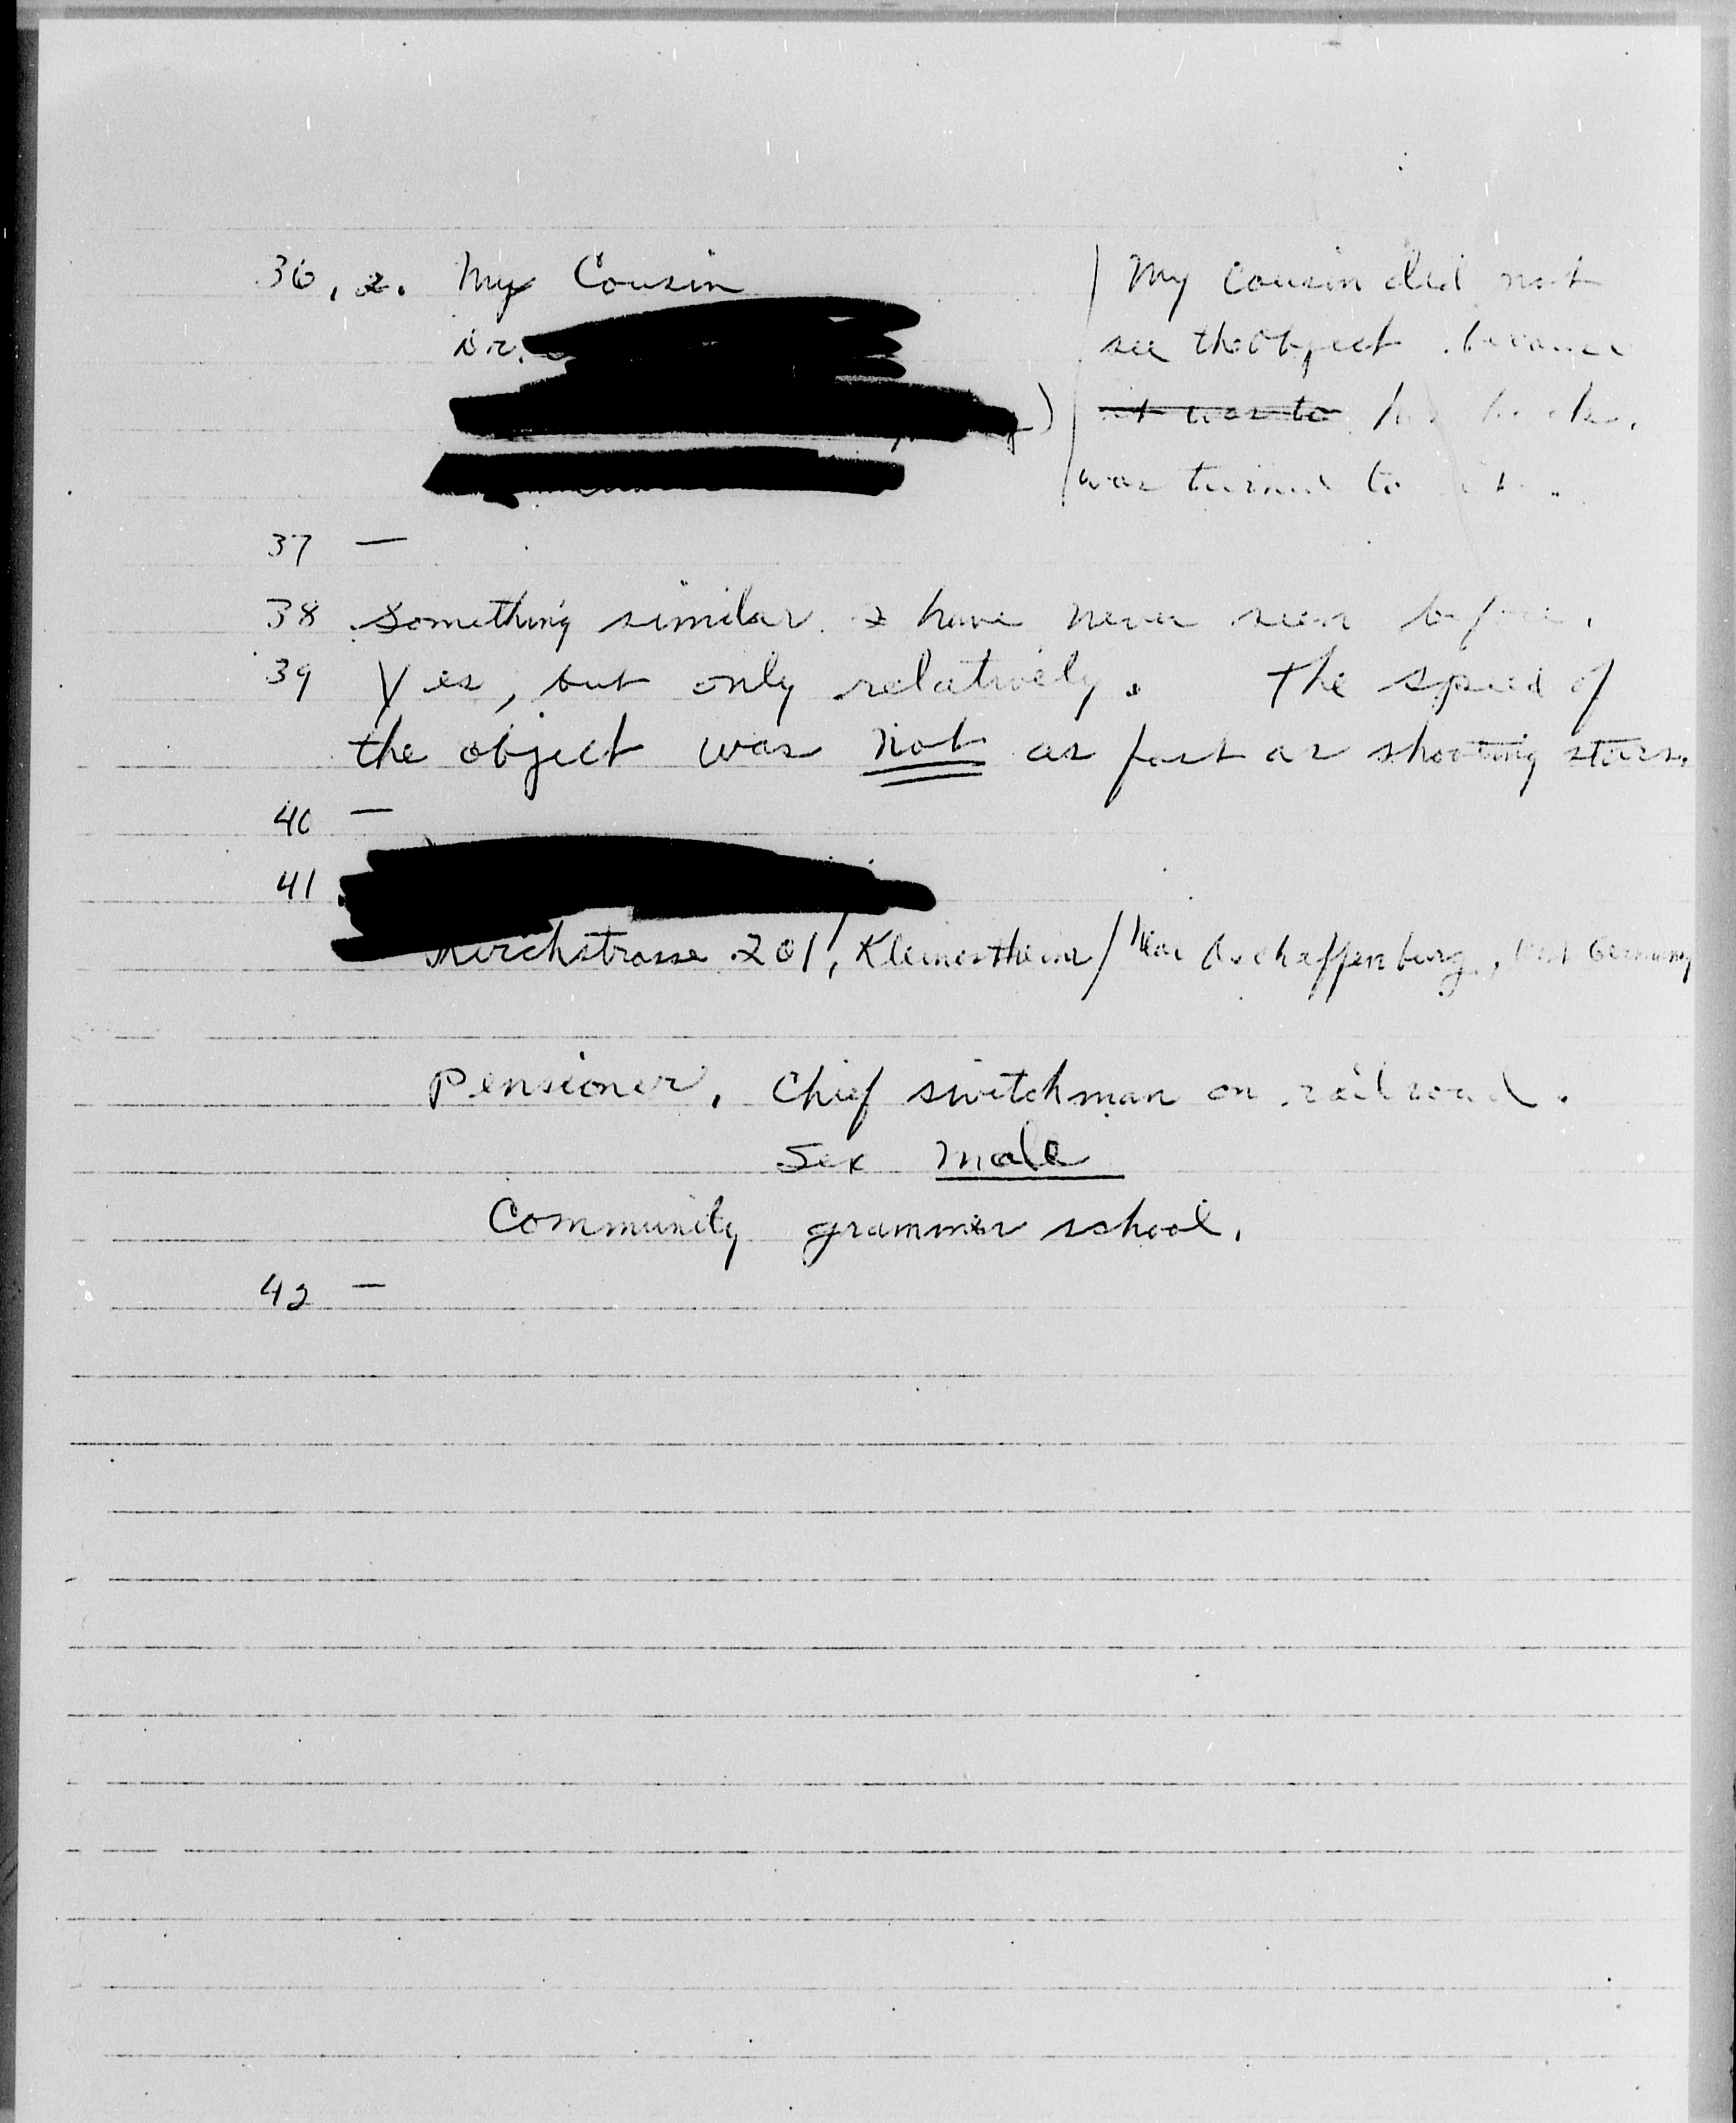 36, 2. My Cousin
Dr.
)
My cousin did not
see the object because
it was to his back.
was turned to it.
37 —
38 Something similar I have never seen before.
39 Yes, but only relatively. The speed of
the object was not as fast as shooting stars.
40 —
41
Kirchstrasse 201, Kleinostheim / Near Aschaffenburg, West Germany
Pensioner, Chief switchman on railroad.
Sex male
Community grammer school.
42 —